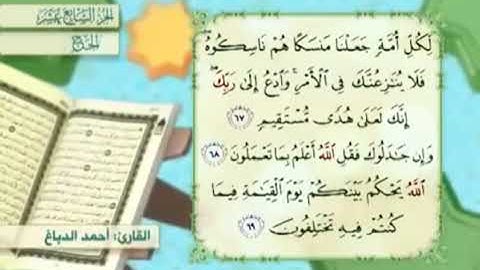 الجزء السابع عشر
الحج
لِّكُلِّ أُمَّةٍ جَعَلْنَا مَنسَكًا هُمْ نَاسِكُوهُ ۖ
فَلَا يُنَازِعُنَّكَ فِي الْأَمْرِ ۚ وَادْعُ إِلَىٰ رَبِّكَ ۖ
إِنَّكَ لَعَلَىٰ هُدًى مُّسْتَقِيمٍ ٦٧
وَإِن جَادَلُوكَ فَقُلِ اللَّهُ أَعْلَمُ بِمَا تَعْمَلُونَ ٦٨
اللَّهُ يَحْكُمُ بَيْنَكُمْ يَوْمَ الْقِيَامَةِ فِيمَا
كُنتُمْ فِيهِ تَخْتَلِفُونَ ٦٩
القارئ: أحمد الدباغ